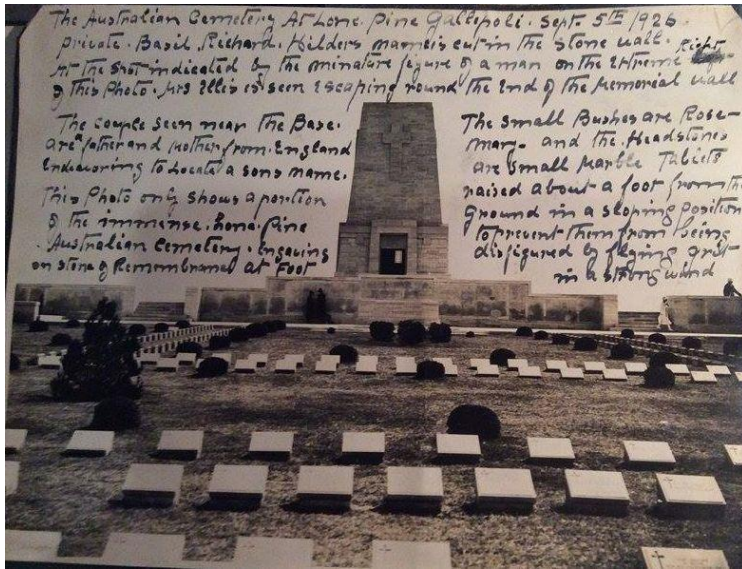 The Australian Cemetery At Lone. Pine Gallopoli. Sept. 5TH 1926.
Private. Basil. Richard. Hilders name is cut in the stone wall.
At the spot indicated by the minature figure of a man on the Extreme Right
of this Photo. Mrs Ellis is seen Escaping round the End of the Memorial wall
The couple seen near the Base.
are father and Mother from. England
Endeavoring to Locate a sons name.
This Photo only shows a portion
of the immense. Lone. Pine
Australian Cemetery. Engraving
on stone of Remembrance at Foot
The small Bushes are Rose-
mary. and the Headstones
are small Marble Tablets
raised about a foot from the
Ground in a sloping position
to prevent them from being
disfigured by flying grit
in a strong wind